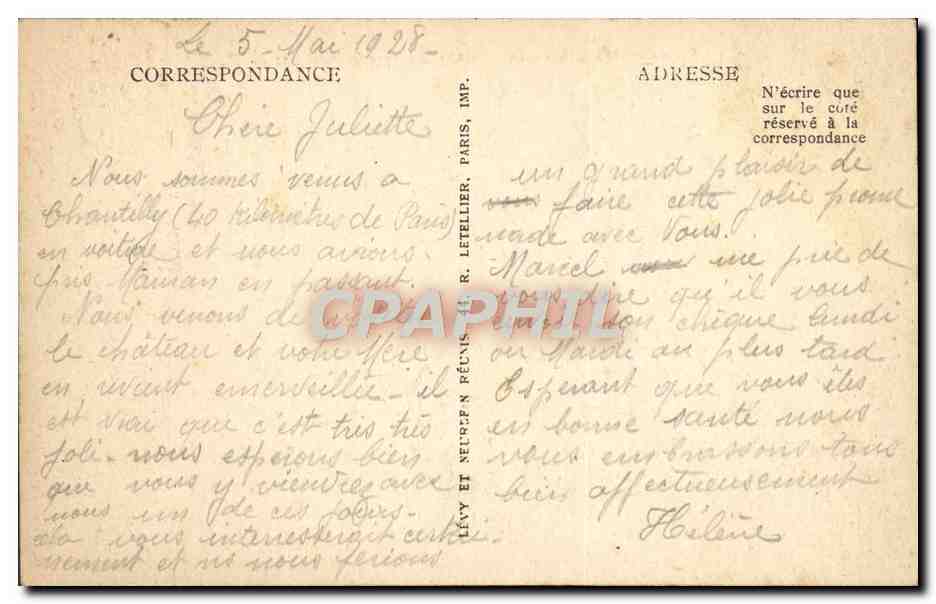 Le 5 - Mai 1928 -
CORRESPONDANCE
Chère Juliette
Nous sommes venus a
Chantilly (40 Kilomètres de Paris)
en voiture et nous avions
pris Maman en passant.
Nous venons de visiter
le château et votre Mère
en revient emerveillée - il
est vrai que c'est tres très
joli - nous esperons bien
que vous y viendrez avec
nous un de ces jours -
cela vous interresserait certai-
nement et ns nous ferions
LÉVY ET NEURDEIN RÉUNIS, 44, R. LETELLIER, PARIS, IMP.
ADRESSE
N'écrire que
sur le coté
réservé à la
correspondance
un grand plaisir de
faire cette jolie prome
nade avec Vous.
Marcel me prie de
vous dire qu'il vous
envoie son chèque Lundi
ou Mardi au plus tard
Esperant que vous êtes
en bonne santé nous
vous embrassons tous
bien affectueusement
Hélène
CPAPHIL